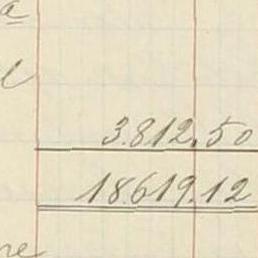 a
l
3.812.50
18.619.12
re